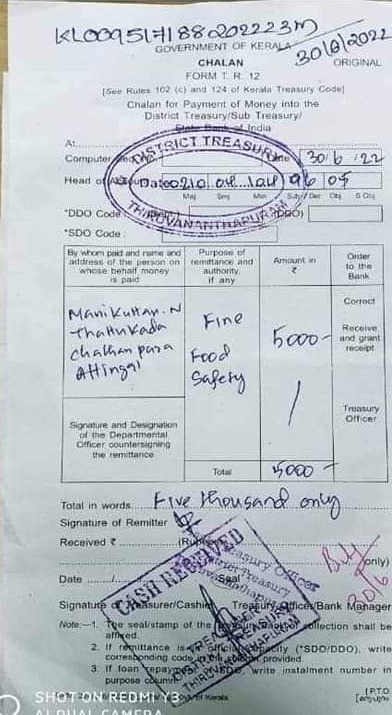 KL009517188202223M
GOVERNMENT OF KERALA
30/6/2022
CHALAN
ORIGINAL
FORM T. R. 12
[See Rules 102 (c) and 124 of Kerala Treasury Code]
Chalan for Payment of Money into the
District Treasury/Sub Treasury/
State Bank of India
At
Computer
Date 30 6 '22
Head of Account 0210 04 104 96 05
Maj Smj Min Sub Det Obj S Obj
*DDO Code
*SDO Code :
DISTRICT TREASURY
Date
THIRUVANANTHAPURAM
By whom paid and name and address of the person on whose behalf money is paid
Purpose of remittance and authority, if any
Amount in ₹
Order to the Bank
Manikuttan. N
Thattukada
Chathanpara
Attingal
Fine
Food
Safety
5000-
Correct
Receive and grant receipt
Treasury Officer
Signature and Designation of the Departmental Officer countersigning the remittance
Total 5000-
Total in words Five thousand only
Signature of Remitter
Received ₹ (Rupees
only)
Date
Seal
CASH RECEIVED
Treasury Officer
District Treasury
Signature of Treasurer/Cashier Treasury Officer/Bank Manager
Note:-1. The seal/stamp of the collection shall be affixed.
2. If remittance is capacity (*SDO/DDO), write corresponding code in the provided.
3. If loan repayment write instalment number in purpose column
[P.T.O
SHOT ON REDMI Y3
AI DUAL CAMERA